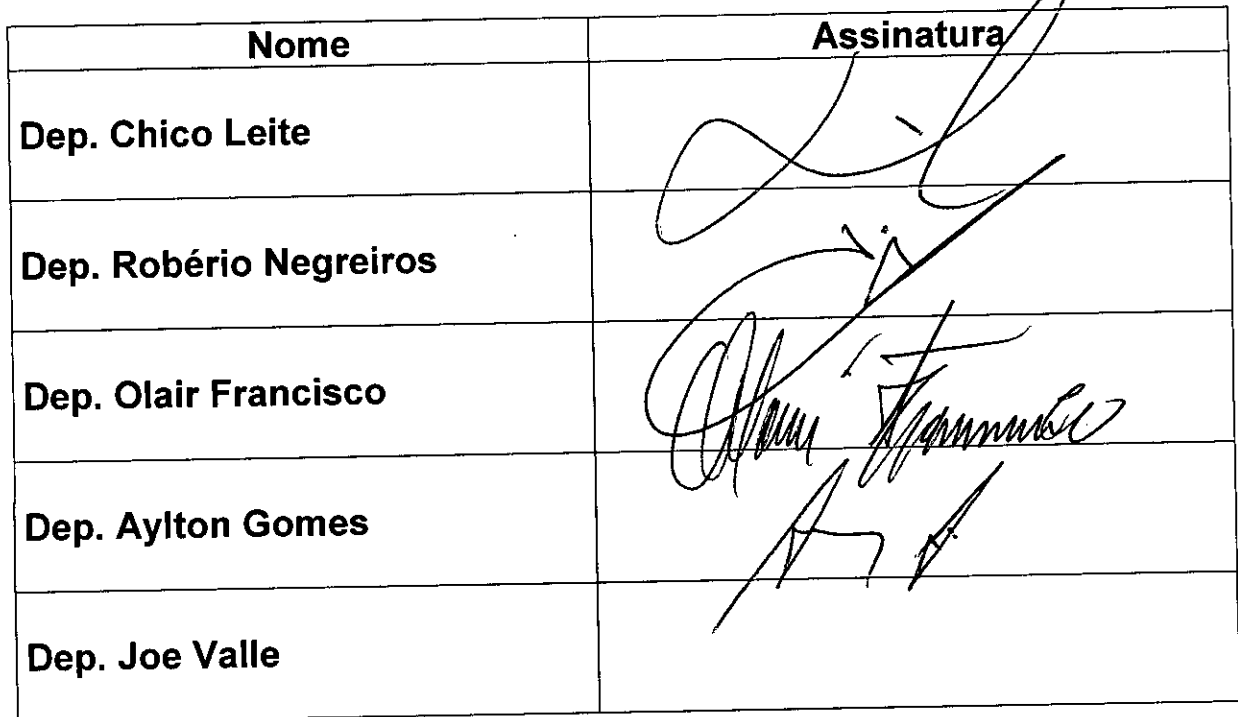 Nome Assinatura
Dep. Chico Leite
Dep. Robério Negreiros
Dep. Olair Francisco
Dep. Aylton Gomes
Dep. Joe Valle